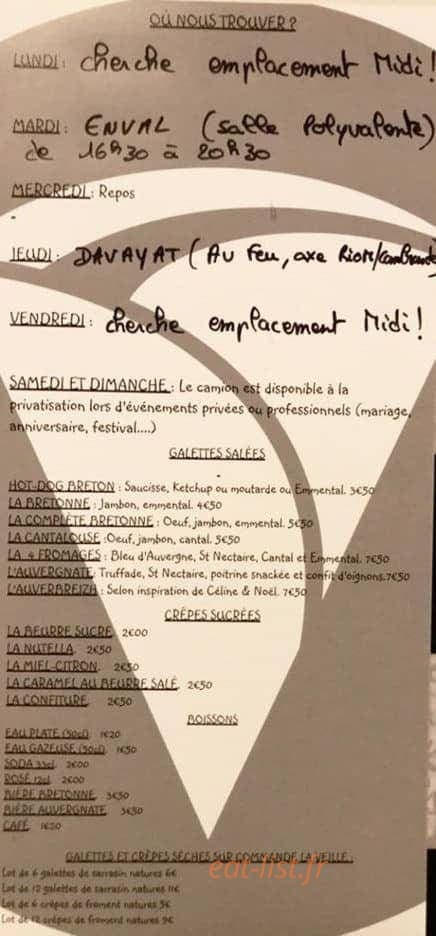 OÙ NOUS TROUVER ?
LUNDI : cherche emplacement Midi !
MARDI : ENVAL (salle Polyvalente)
de 16h30 à 20h30
MERCREDI : Repos
JEUDI : DAVAYAT (Au Feu, axe Riom/Combronde
VENDREDI : cherche emplacement Midi !
SAMEDI ET DIMANCHE : Le camion est disponible à la
privatisation lors d'événements privées ou professionnels (mariage,
anniversaire, festival....)
GALETTES SALÉES
HOT-DOG BRETON : Saucisse, Ketchup ou moutarde ou Emmental. 3€50
LA BRETONNE : Jambon, emmental. 4€50
LA COMPLÈTE BRETONNE : Oeuf, jambon, emmental. 5€50
LA CANTALOUSE :Oeuf, jambon, cantal. 5€50
LA 4 FROMAGES : Bleu d'Auvergne, St Nectaire, Cantal et Emmental. 7€50
L'AUVERGNATE: Truffade, St Nectaire, poitrine snackée et confit d'oignons.7€50
L'AUVERBREIZH : Selon inspiration de Céline & Noël. 7€50
CRÊPES SUCRÉES
LA BEURRE SUCRE 2€00
LA NUTELLA 2€50
LA MIEL-CITRON. 2€50
LA CARAMEL AU BEURRE SALÉ 2€50
LA CONFITURE 2€50
BOISSONS
EAU PLATE (50cl) 1€20
EAU GAZEUSE (50cl) 1€50
SODA 33cl 2€00
ROSÉ 12cl 2€00
BIÈRE BRETONNE 3€50
BIÈRE AUVERGNATE 3€50
CAFÉ 1€20
GALETTES ET CRÊPES SÈCHES SUR COMMANDE LA VEILLE :
Lot de 6 galettes de sarrasin natures 6€
Lot de 12 galettes de sarrasin natures 11€
Lot de 6 crêpes de froment natures 5€
Lot de 12 crêpes de froment natures 9€
eat-list.fr